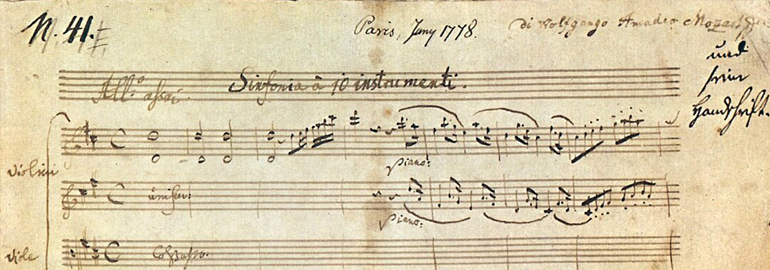 N. 41. Paris, Juny 1778. di Wolfgango Amadeo Mozart
und
seine
Handschrift.
All:o assai. Sinfonia à 10 instrumenti.
violini
piano:
unison:
piano:
viole
Col Basso.